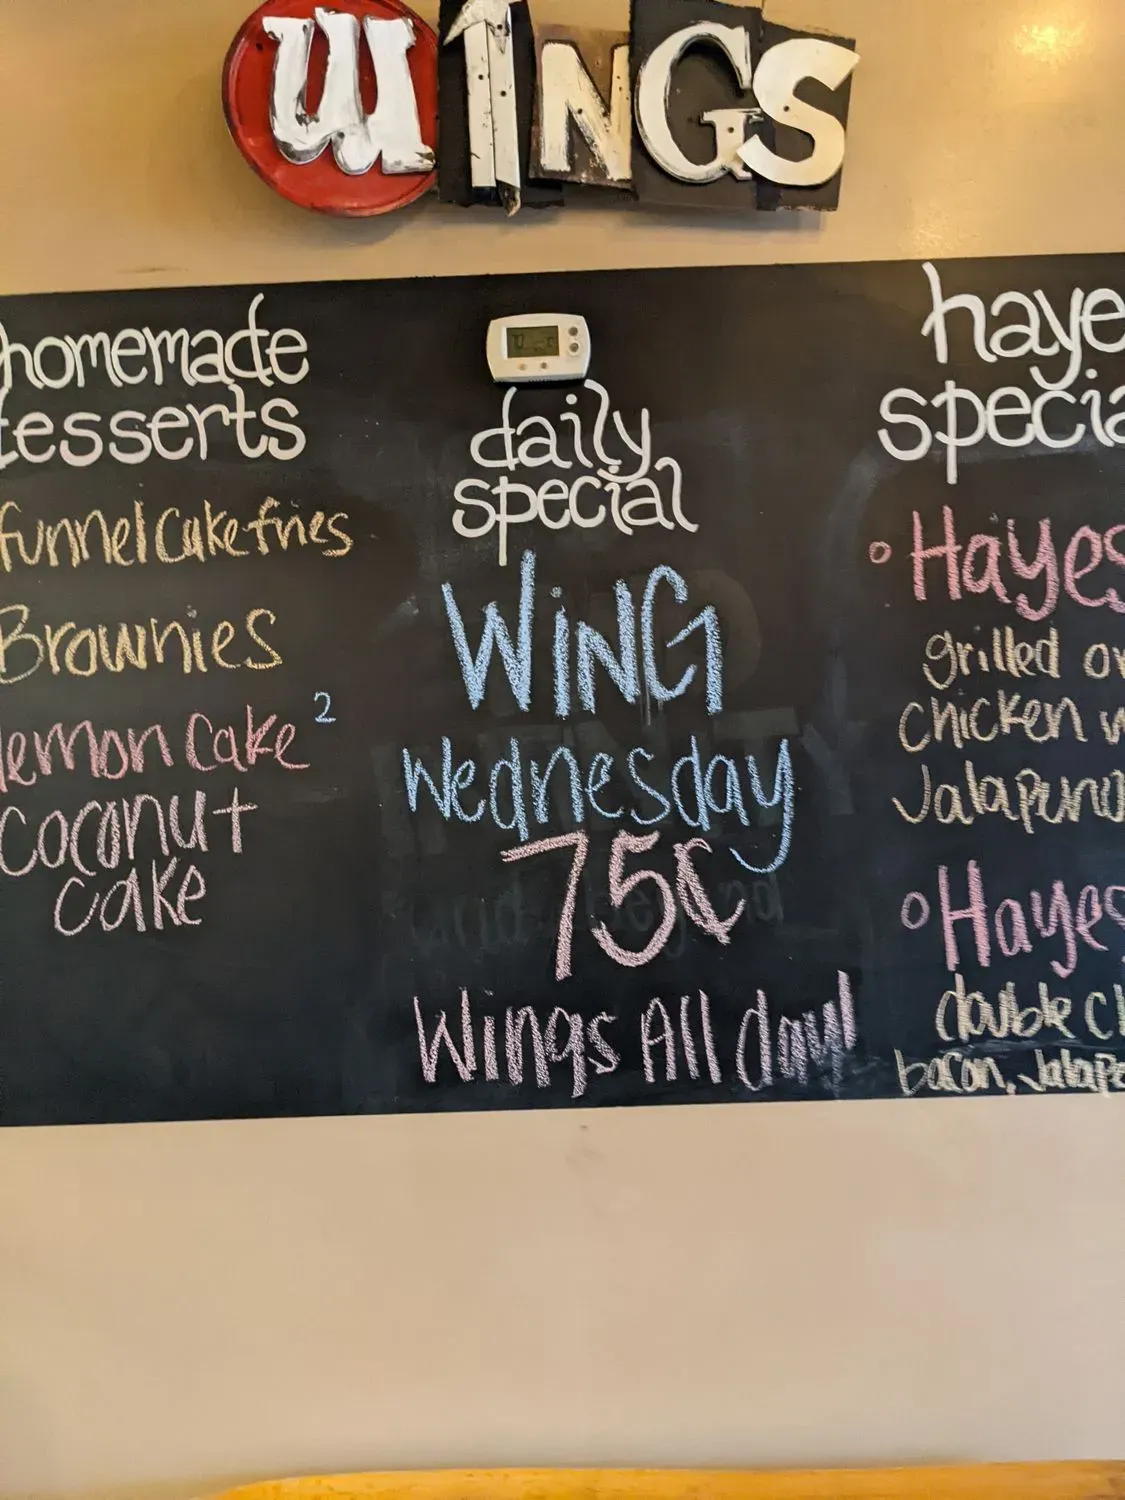 WINGS
homemade
desserts
funnel cake fries
Brownies
lemon Cake 2
Coconut
cake
daily
special
WiNG
Wednesday
75¢
Wings All day!
haye
specia
Hayes
grilled or
chicken w
Jalapeno
Hayes
double c
bacon, Jalape